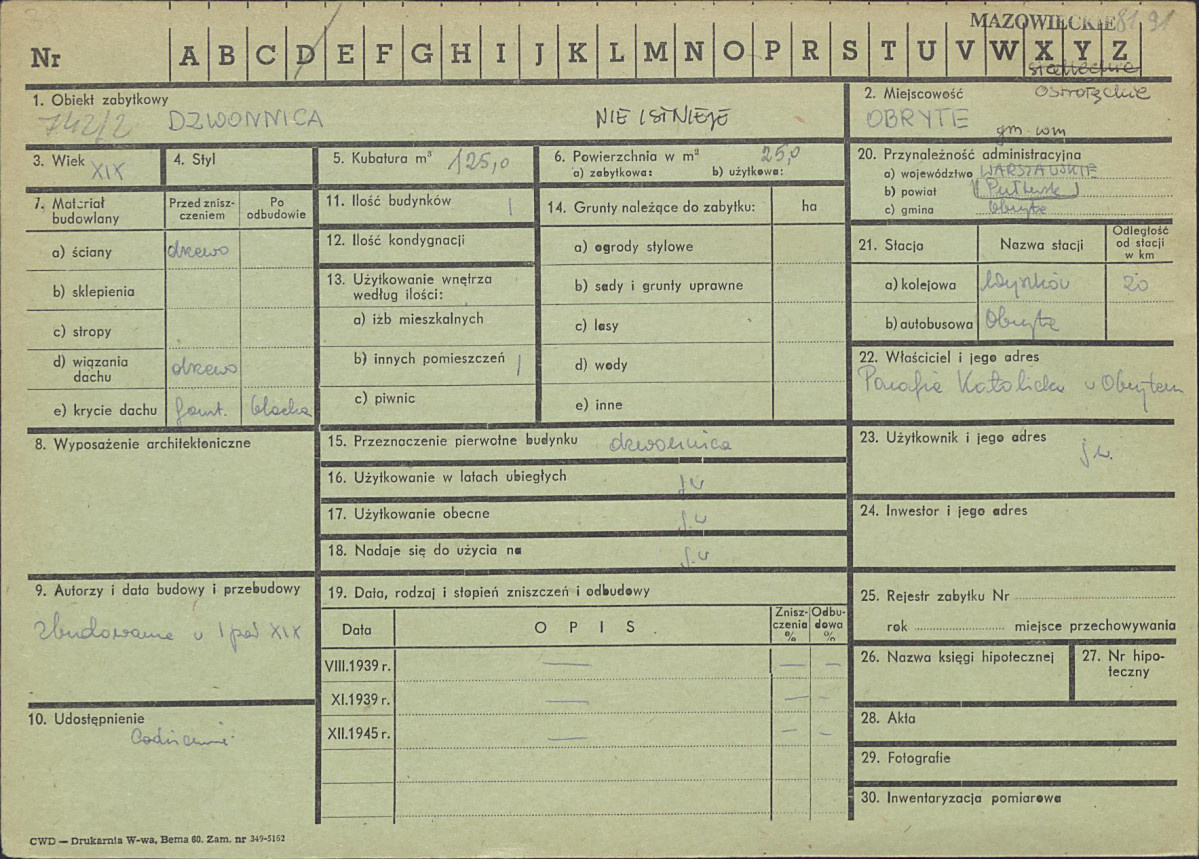 MAZOWIECKIE 8191
Nr A B C D E F G H I J K L M N O P R S T U V W X Y Z
siedleckie
1. Obiekt zabytkowy
742/2 DZWONNICA NIE ISTNIEJE
2. Miejscowość ostrołęckie
OBRYTE
gm. wm
3. Wiek XIX
4. Styl
5. Kubatura m³ 125,0
6. Powierzchnia w m² 25,0
a) zabytkowa: b) użytkowa:
20. Przynależność administracyjna
a) województwo WARSZAWSKIE
b) powiat Pułtusk
c) gmina Obryte
7. Materiał budowlany
Przed znisz-
czeniem
Po
odbudowie
a) ściany drzewo
b) sklepienia
c) stropy
d) wiązania
dachu drzewo
e) krycie dachu gont. blacha
11. Ilość budynków 1
12. Ilość kondygnacji
13. Użytkowanie wnętrza
według ilości:
a) izb mieszkalnych
b) innych pomieszczeń 1
c) piwnic
14. Grunty należące do zabytku: ha
a) ogrody stylowe
b) sady i grunty uprawne
c) lasy
d) wody
e) inne
21. Stacja Nazwa stacji
Odległość
od stacji
w km
a) kolejowa Wyszków 20
b) autobusowa Obryte
22. Właściciel i jego adres
Parafia Katolicka w Obrytem
8. Wyposażenie architektoniczne
15. Przeznaczenie pierwotne budynku dzwonnica
16. Użytkowanie w latach ubiegłych j.w
17. Użytkowanie obecne j.w
18. Nadaje się do użycia na j.w
23. Użytkownik i jego adres
j.w.
24. Inwestor i jego adres
9. Autorzy i data budowy i przebudowy
zbudowana w I poł XIX
19. Data, rodzaj i stopień zniszczeń i odbudowy
Data O P I S
Znisz-
czenia
%
Odbu-
dowa
%
VIII.1939 r. — — —
XI.1939 r. — — —
XII.1945 r. — — —
25. Rejestr zabytku Nr
rok miejsce przechowywania
26. Nazwa księgi hipotecznej
27. Nr hipo-
teczny
10. Udostępnienie
Codziennie
28. Akta
29. Fotografie
30. Inwentaryzacja pomiarowa
CWD — Drukarnia W-wa, Bema 60. Zam. nr 349-5162